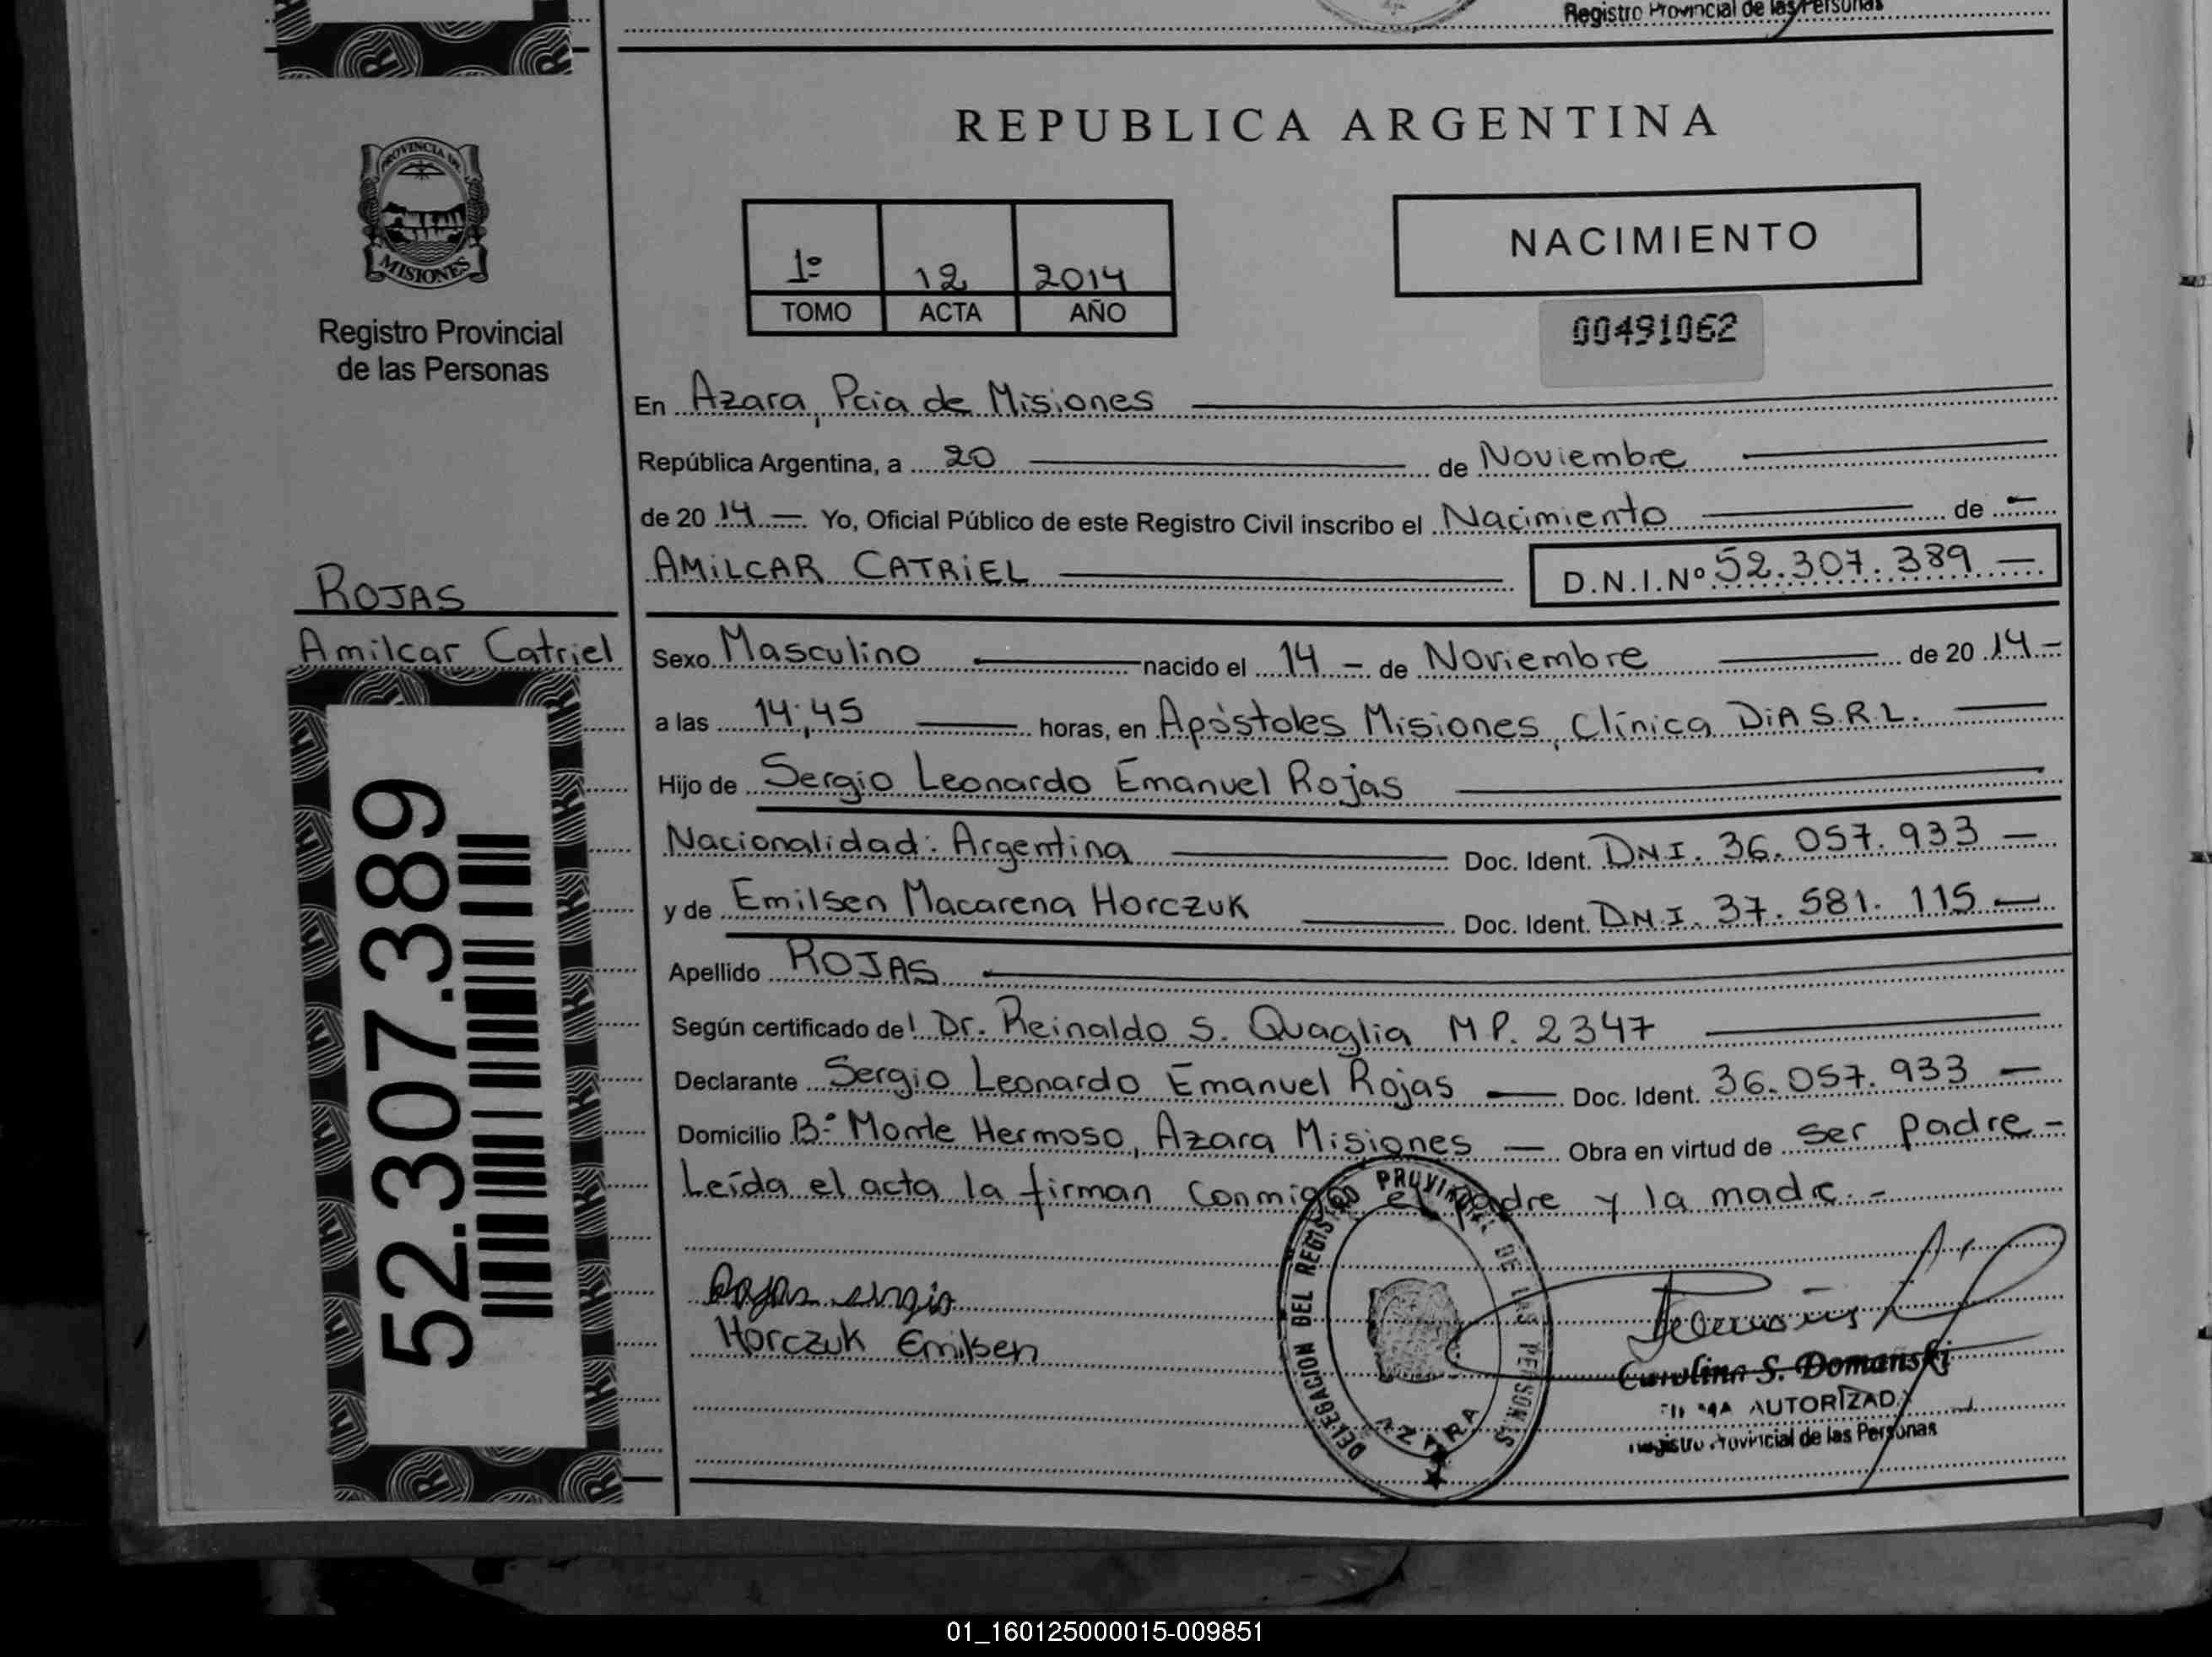 Registro Provincial de las Personas
PROVINCIA DE
MISIONES
Registro Provincial
de las Personas
ROJAS
Amilcar Catriel
52.307.389
REPUBLICA ARGENTINA
1º 12 2014
TOMO ACTA AÑO
NACIMIENTO
00491062
En Azara, Pcia de Misiones
República Argentina, a 20 de Noviembre
de 20 14 — Yo, Oficial Público de este Registro Civil inscribo el Nacimiento de —
AMILCAR CATRIEL D.N.I.Nº 52.307.389 —
Sexo Masculino nacido el 14 - de Noviembre de 20 14 -
a las 14:45 horas, en Apóstoles Misiones, Clínica DIA S.R.L.
Hijo de Sergio Leonardo Emanuel Rojas
Nacionalidad: Argentina Doc. Ident. DNI. 36.057.933 —
y de Emilsen Macarena Horczuk Doc. Ident. DNI. 37.581.115 —
Apellido ROJAS
Según certificado de: Dr. Reinaldo S. Quaglia M P. 2347
Declarante Sergio Leonardo Emanuel Rojas — Doc. Ident. 36.057.933 —
Domicilio Bº Monte Hermoso, Azara Misiones — Obra en virtud de ser padre -
Leída el acta la firman conmigo el padre y la madre. -
Rojas sergio
Horczuk Emilsen
DELEGACION DEL REGISTRO PROVINCIAL DE LAS PERSONAS
AZARA
Carolina S. Domanski
FIRMA AUTORIZADA
Registro Provincial de las Personas
01_160125000015-009851